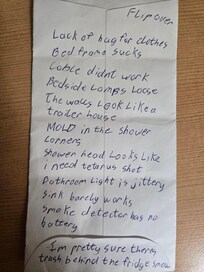 Flip over
Lack of hug for clothes
Bed frame sucks
Cable didnt work
Bedside Lamps Loose
The walls Look Like a
trailer house
MOLD in the shower
corners
Shower head Looks Like
i need tetanus shot
Bathroom Light is jittery
Sink barely works
Smoke detector has no
battery
I'm pretty sure theres
trash behind the fridge